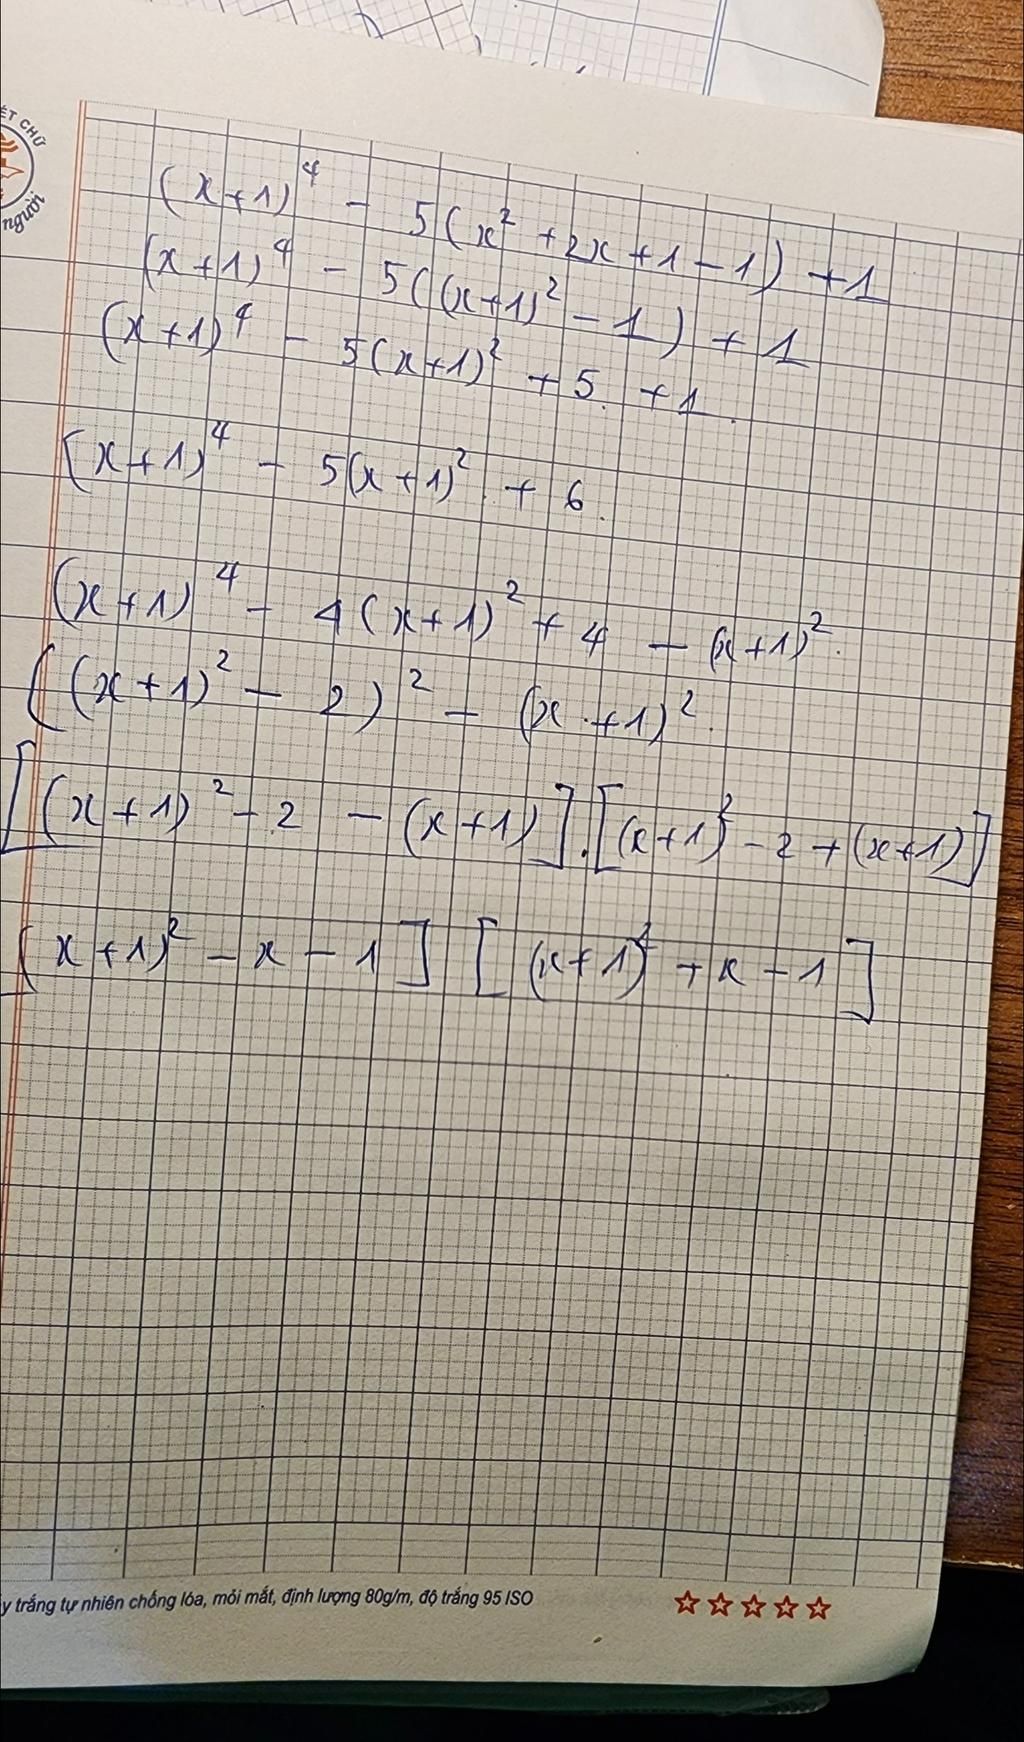 ẾT CHỮ
người
(x+1)⁴ - 5(x² + 2x + 1 - 1) + 1
(x+1)⁴ - 5((x+1)² - 1) + 1
(x+1)⁴ - 5(x+1)² + 5 + 1
(x+1)⁴ - 5(x+1)² + 6
(x+1)⁴ - 4(x+1)² + 4 - (x+1)²
((x+1)² - 2)² - (x+1)²
[(x+1)² - 2 - (x+1)].[(x+1)² - 2 + (x+1)]
[x+1)² - x - 1] [(x+1)² + x - 1]
y trắng tự nhiên chống lóa, mỏi mắt, định lượng 80g/m, độ trắng 95 ISO